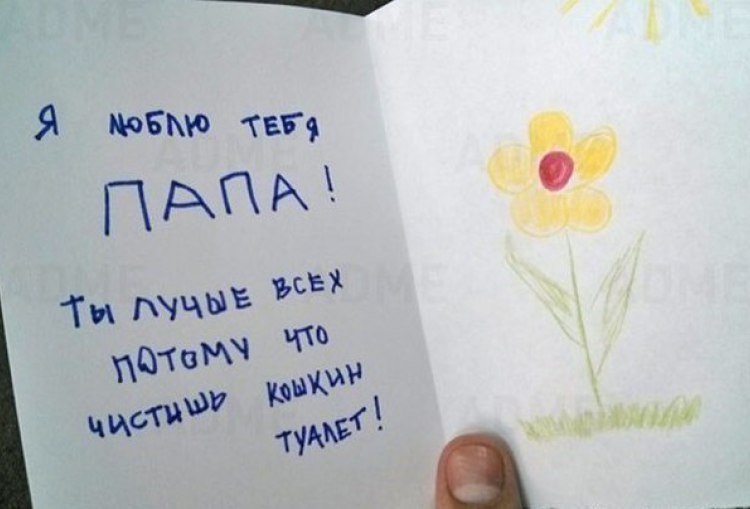 Я люблю ТЕБЯ
ПАПА!
ТЫ ЛУЧШЕ ВСЕХ
ПОТОМУ ЧТО
ЧИСТИШЬ КОШКИН
ТУАЛЕТ!
ADME
ADME
ADME
ADME
ADME
ADME
ADME
ADME